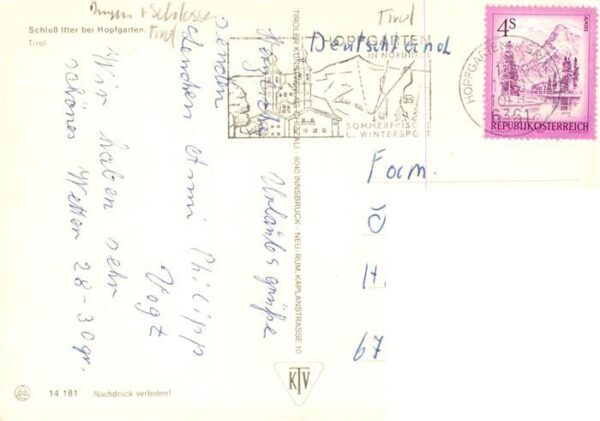 Burgen + Schlösser
Tirol
Schloß Itter bei Hopfgarten,
Tirol
Herzliche Urlaubsgrüße
senden
Philipp
Vogt
Wir haben sehr
schönes Wetter 28-30gr.
14 181 Nachdruck verboten!
TIROLER KUNSTVERLAG 6040 INNSBRUCK - NEU-RUM, KAPLANSTRASSE 10
KTV
Tirol
HOPFGARTEN
IN NORDTIROL
SOMMERFRISCHE
WINTERSPORT
Deutschland
Fam.
Ö
H
67
HOPFGARTEN
6361
4S
REPUBLIK ÖSTERREICH